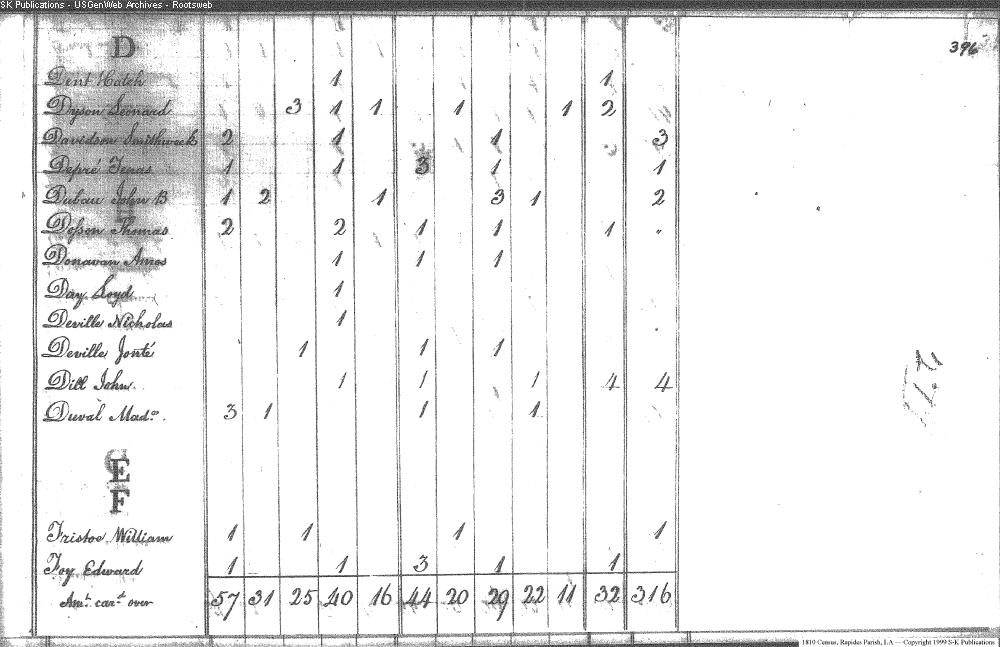 SK Publications - USGenWeb Archives - Rootsweb
396
D
Dent Hatch 1 1
Dyson Leonard 3 1 1 1 1 2
Davidson Smithweek 2 1 1 3
Depré Jenas 1 1 3 1 1
Dubau John B 1 2 1 3 1 2
Dosson Thomas 2 2 1 1 1 "
Donavan Amos 1 1 1
Day Loyd 1
Deville Nicholas 1
Deville Jonté 1 1 1
Dill John 1 1 1 4 4
Duval Mad.e 3 1 1 1
E
F
Fristoe William 1 1 1 1
Foy Edward 1 1 3 1 1
Amt. car.d over 57 31 25 40 16 44 20 29 22 11 32 316
1810 Census, Rapides Parish, LA — Copyright 1999 S-K Publications